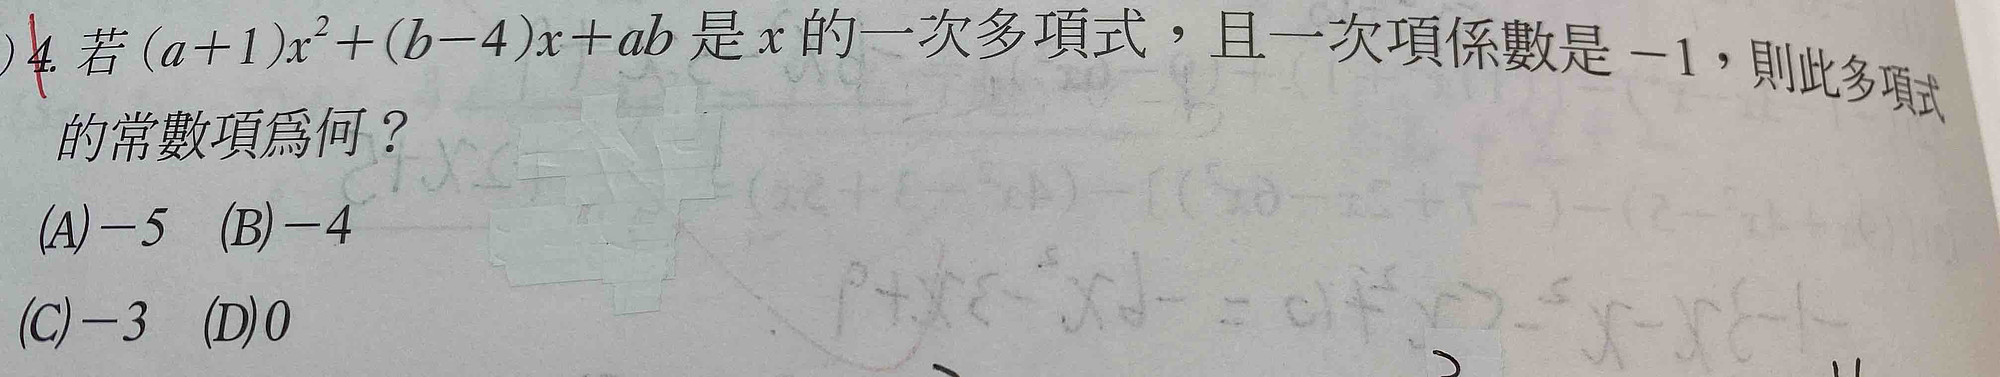 )4. 若(a+1)x²+(b−4)x+ab 是 x 的一次多項式，且一次項係數是 −1，則此多項式
的常數項為何？
(A)−5 (B)−4
(C)−3 (D)0